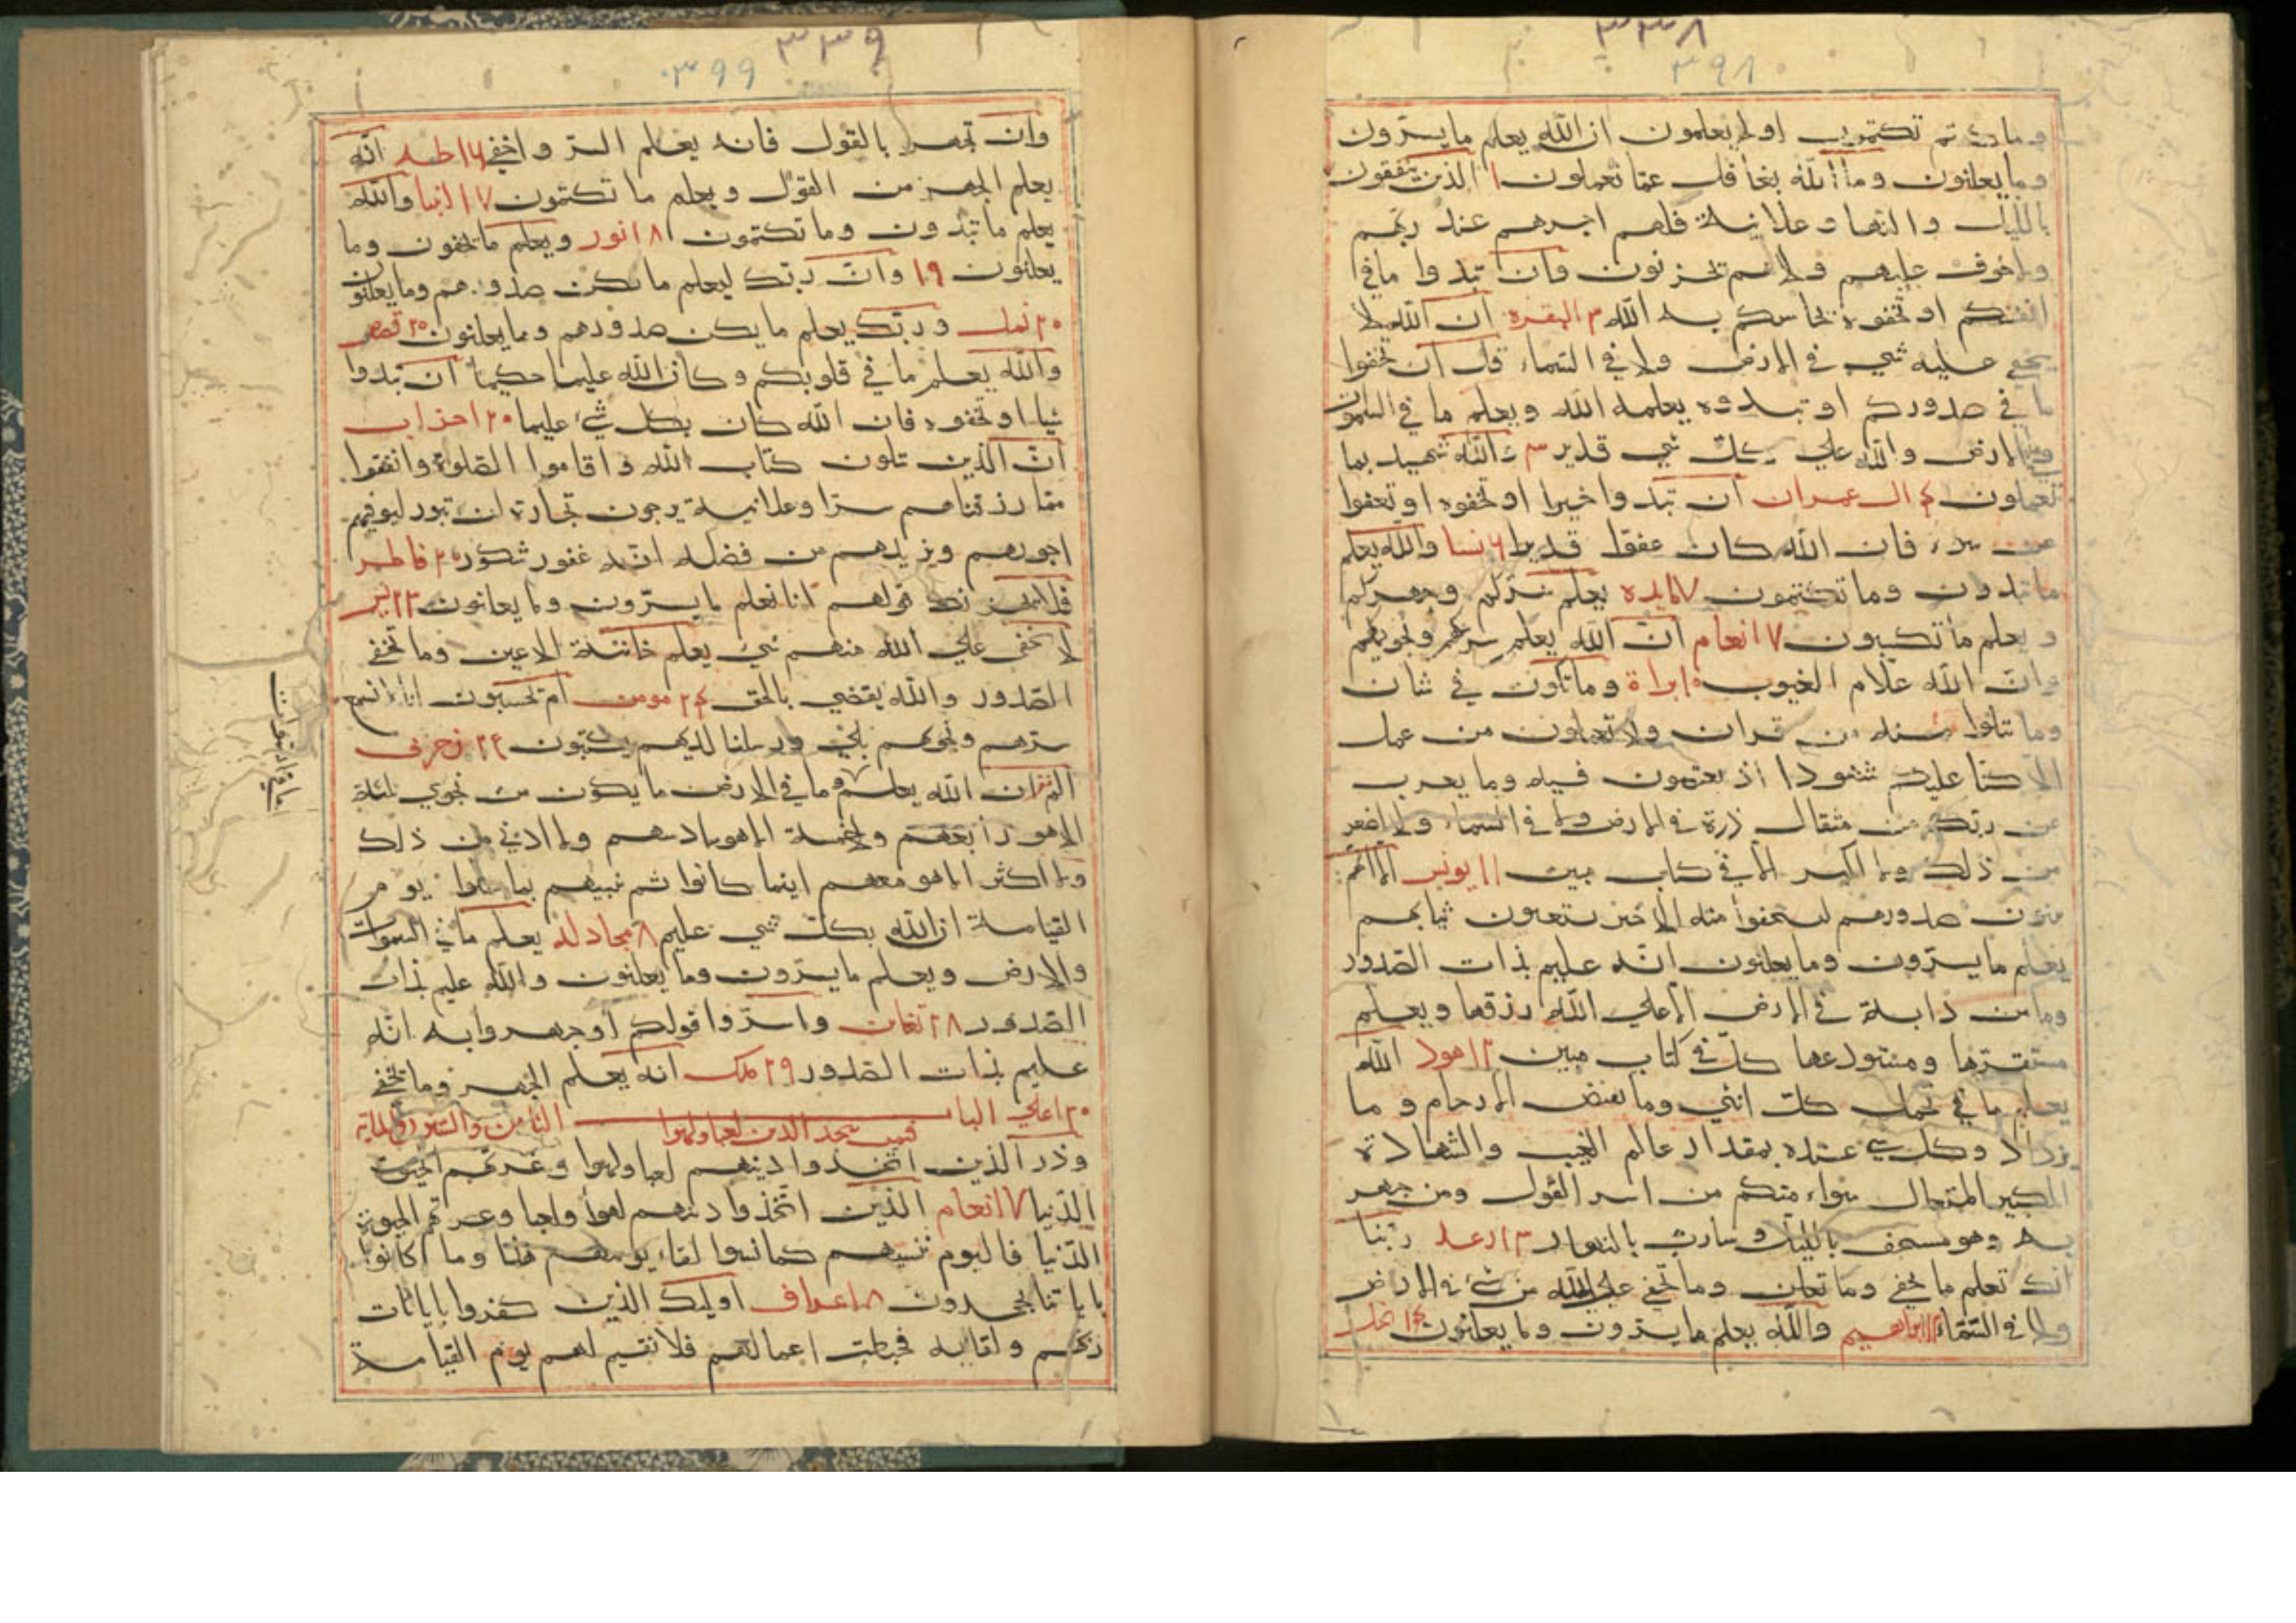 ٣٣٨
٣٩٨
وما كنتم تكتمون اولا يعلمون ان الله يعلم ما يسرون
وما يعلنون وما الله بغافل عما تعملون ١ الذين ينفقون
بالليل والنهار وعلانية فلهم اجرهم عند ربهم
ولا خوف عليهم ولا هم يحزنون وان تبدوا ما في
انفسكم او تخفوه يحاسبكم به الله ٣ البقره ان الله لا
يخفى عليه شي في الارض ولا في السماء قل ان تخفوا
ما في صدوركم او تبدوه يعلمه الله ويعلم ما في السموات
وما في الارض والله على كل شي قدير ٣ والله شهيد بما
تعملون ٤ ال عمران ان تبدوا خيرا او تخفوه او تعفوا
عن سوء فان الله كان عفوا قديرا ٦ نسا والله يعلم
ما تبدون وما تكتمون ٧ مايده يعلم سركم وجهركم
ويعلم ما تكسبون ٧ انعام ان الله يعلم سرهم ونجويهم
وان الله علام الغيوب ١٠ براة وما تكون في شان
وما تتلوا منه من قران ولا تعملون من عمل
الا كنا عليكم شهودا اذ تفيضون فيه وما يعزب
عن ربك من مثقال ذرة في الارض ولا في السماء ولا اصغر
من ذلك ولا اكبر الا في كتاب مبين ١١ يونس الا انهم
يثنون صدورهم ليستخفوا منه الا حين يستغشون ثيابهم
يعلم ما يسرون وما يعلنون انه عليم بذات الصدور
وما من دابة في الارض الا على الله رزقها ويعلم
مستقرها ومستودعها كل في كتاب مبين ١٢ هود الله
يعلم ما تحمل كل انثي وما تغيض الارحام وما
تزداد وكل شي عنده بمقدار عالم الغيب والشهادة
الكبير المتعال سواء منكم من اسر القول ومن جهر
به وهو مستخف بالليل وسارب بالنهار ١٣ رعد ربنا
انك تعلم ما نخفي وما نعلن وما تخفى على الله من شئ في الارض
ولا في السماء ابراهيم والله يعلم ما يسرون وما يعلنون ١٤ نحل
٣٣٩
٣٩٩
وان تجهر بالقول فانه يعلم السر واخفى ١٦ طه انه
يعلم الجهر من القول ويعلم ما تكتمون ١٧ انبيا والله
يعلم ما تبدون وما تكتمون ١٨ نور ويعلم ما تخفون وما
يعلنون ١٩ وان ربك ليعلم ما تكن صدورهم وما يعلنون
٢٠ نمل وربك يعلم ما يكن صدورهم وما يعلنون ٢٠ قصص
والله يعلم ما في قلوبكم وكان الله عليما حكيما ان تبدوا
شيا او تخفوه فان الله كان بكل شئ عليما ٢٠ احزاب
ان الذين يتلون كتاب الله واقاموا الصلوة وانفقوا
مما رزقناهم سرا وعلانية يرجون تجارة لن تبور ليوفيهم
اجورهم ويزيدهم من فضله انه غفور شكور ٢٠ فاطر
فلا يحزنك قولهم انا نعلم ما يسرون وما يعلنون ٢٣ يس
لا يخفى على الله منهم شئ يعلم خائنة الاعين وما تخفي
الصدور والله يقضي بالحق ٢٤ مومن ام تحسبون انا لا نسمع
سرهم ونجويهم بلى ورسلنا لديهم يكتبون ٢٤ زخرف
الم تر ان الله يعلم وما في الارض ما يكون من نجوي ثلثة
الا هو رابعهم ولا خمسة الا هو سادسهم ولا ادنى من ذلك
ولا اكثر الا هو معهم اينما كانوا ثم ينبيهم بما عملوا يوم
القيامة ان الله بكل شي عليم ٢٨ مجادله يعلم ما في السموات
والارض ويعلم ما يسرون وما يعلنون والله عليم بذات
الصدور ٢٨ تغابن واسروا قولكم او جهروا به انه
عليم بذات الصدور ٢٩ ملك انه يعلم الجهر وما يخفى
٣٠ اعلى الباب الثامن والستون والماية
فيمن يتخذ الدين لعبا ولهوا
وذر الذين اتخذوا دينهم لعبا ولهوا وغرتهم الحيوة
الدنيا ٧ انعام الذين اتخذوا دينهم لهوا ولعبا وغرتهم الحيوة
الدنيا فاليوم ننسيهم كما نسوا لقاء يومهم هذا وما كانوا
باياتنا يجحدون ٨ اعراف اوليك الذين كفروا بايات
ربهم ولقايه فحبطت اعمالهم فلا نقيم لهم يوم القيامة
ما في السموات